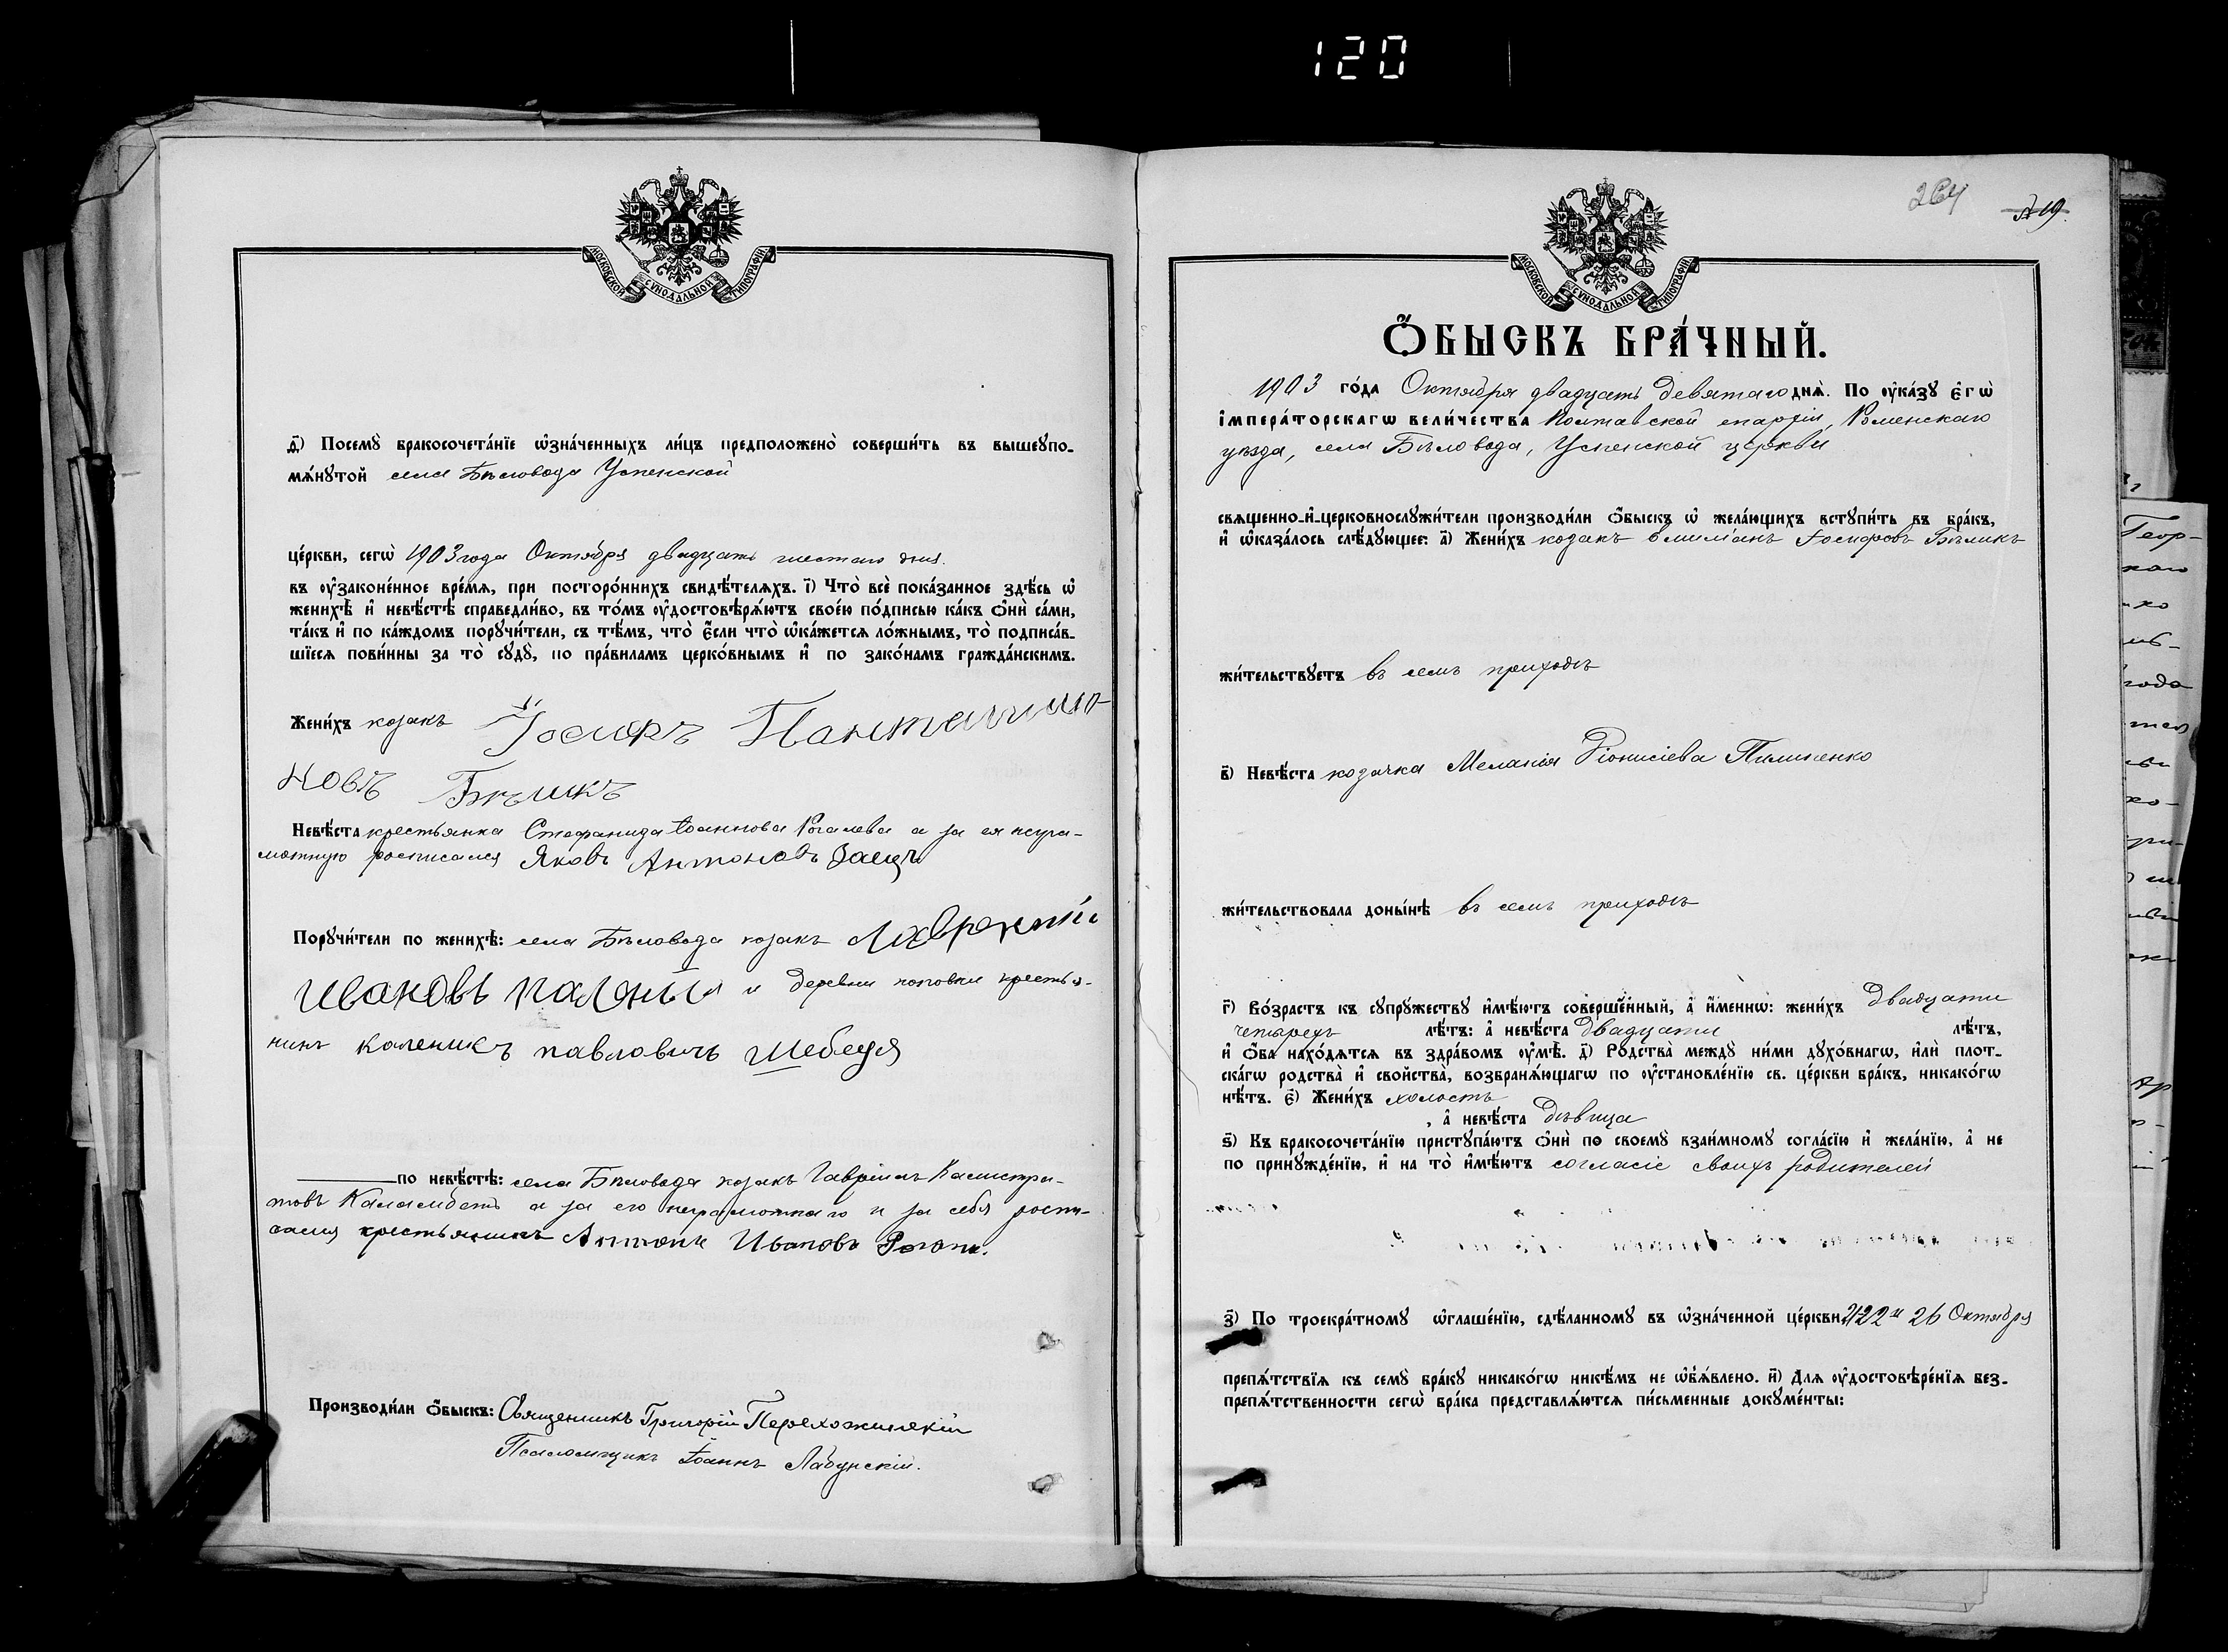 120
МОСКОВСКОЙ СѴНОДАЛЬНОЙ ТИПОГРАФІИ.
д҃) Посемꙋ̀ бракосочета́нїе ѡ҆зна́ченныхъ ли́цъ предположено̀ соверши́ть въ вышеꙋпо-
мѧ́нꙋтой села Бѣловода Успенской
це́ркви, сегѡ̀ 1903 года Октября двадцать шестаго дня.
въ ᲂу҆законе́нное вре́мѧ, при посторо́ннихъ свидѣ́телѧхъ. і҃) Что̀ всѐ пока́занное здѣ́сь ѡ҆
женихѣ̀ и҆ невѣ́стѣ справедли́во, въ то́мъ ᲂу҆достовѣрѧ́ютъ свое́ю по́дписью ка́къ ѻ҆нѝ са́ми,
та́къ и҆ по ка́ждомъ порꙋчи́тели, съ тѣ́мъ, что̀ є҆́сли что̀ ѡ҆ка́жетсѧ ло́жнымъ, то̀ подписа́в-
шїесѧ пови́нны за то̀ сꙋдꙋ̀, по пра́виламъ церко́внымъ и҆ по зако́намъ гражда́нскимъ.
Жени́хъ козакъ Іосифъ Пантелимо-
новъ Бѣликъ
Невѣ́ста крестьянка Стефанида Іоаннова Рогалева а за ея негра-
мотную росписался Яковъ Антоновъ Заецъ
Порꙋчи́тели по женихѣ̀: села Бѣловода козакъ Лаврентій
Ивановъ Палоный и деревни Поповки крестья-
нинъ Каленикъ Павловичъ Шебеця
по невѣ́стѣ: села Бѣловода козакъ Гавріилъ Калистра-
товъ Каламбетъ а за его неграмотнаго и за себя роспи-
сался крестьянинъ Антонъ Ивановъ
Производи́ли ѻ҆́быскъ: Священникъ Григорій
Псаломщикъ Іоаннъ Лабунскій.
264
19.
МОСКОВСКОЙ СѴНОДАЛЬНОЙ ТИПОГРАФІИ.
Ѻ҆́БЫСКЪ БРА́ЧНЫЙ.
1903 го́да Октября двадцать девятаго днѧ̀. По ᲂу҆ка́зꙋ є҆гѡ̀
і҆мпера́торскагѡ вели́чества Полтавской епархіи, Роменскаго
уѣзда, села Бѣловода, Успенской церкви
свѧщенно-и҆-церковнослꙋжи́тели производи́ли ѻ҆́быскъ ѡ҆ жела́ющихъ встꙋпи́ть въ бра́къ,
и҆ ѡ҆каза́лось слѣ́дꙋющее: а҃) Жени́хъ козакъ Емиліанъ Іосифовъ Бѣликъ
жи́тельствꙋетъ въ семъ приходѣ
в҃) Невѣ́ста козачка Меланія Діонисіева Пилипенко
жи́тельствовала доны́нѣ въ семъ приходѣ
г҃) Во́зрастъ къ сꙋпрꙋ́жествꙋ и҆мѣ́ютъ соверше́нный, а҆ и҆́меннѡ: жени́хъ двадцати
четырехъ лѣ́тъ: а҆ невѣ́ста двадцати лѣ́тъ,
и҆ ѻ҆́ба нахо́дѧтсѧ въ здра́вомъ ᲂу҆мѣ̀. д҃) Родства̀ междꙋ̀ ни́ми дꙋхо́внагѡ, и҆лѝ плот-
ска́гѡ родства̀ и҆ свойства̀, возбранѧ́ющагѡ по ᲂу҆становле́нїю св. це́ркви бра́къ, никако́гѡ
нѣ́тъ. є҃) Жени́хъ холостъ
, а҆ невѣ́ста дѣвица
ѕ҃) Къ бракосочета́нїю пристꙋпа́ютъ ѻ҆нѝ по своемꙋ̀ взаи́мномꙋ согла́сїю и҆ жела́нїю, а҆ не
по принꙋжде́нїю, и҆ на то̀ и҆мѣ́ютъ согласіе своихъ родителей
з҃) По троекра́тномꙋ ѡ҆глаше́нїю, сдѣ́ланномꙋ въ ѡ҆зна́ченной це́ркви 22 и 26 Октября
препѧ́тствїѧ къ семꙋ̀ бра́кꙋ никако́гѡ никѣ́мъ не ѡ҆б̾ѧ́влено. и҃) Длѧ ᲂу҆достовѣре́нїѧ без-
препѧ́тственности сегѡ̀ бра́ка представлѧ́ютсѧ пи́сьменные докꙋме́нты: